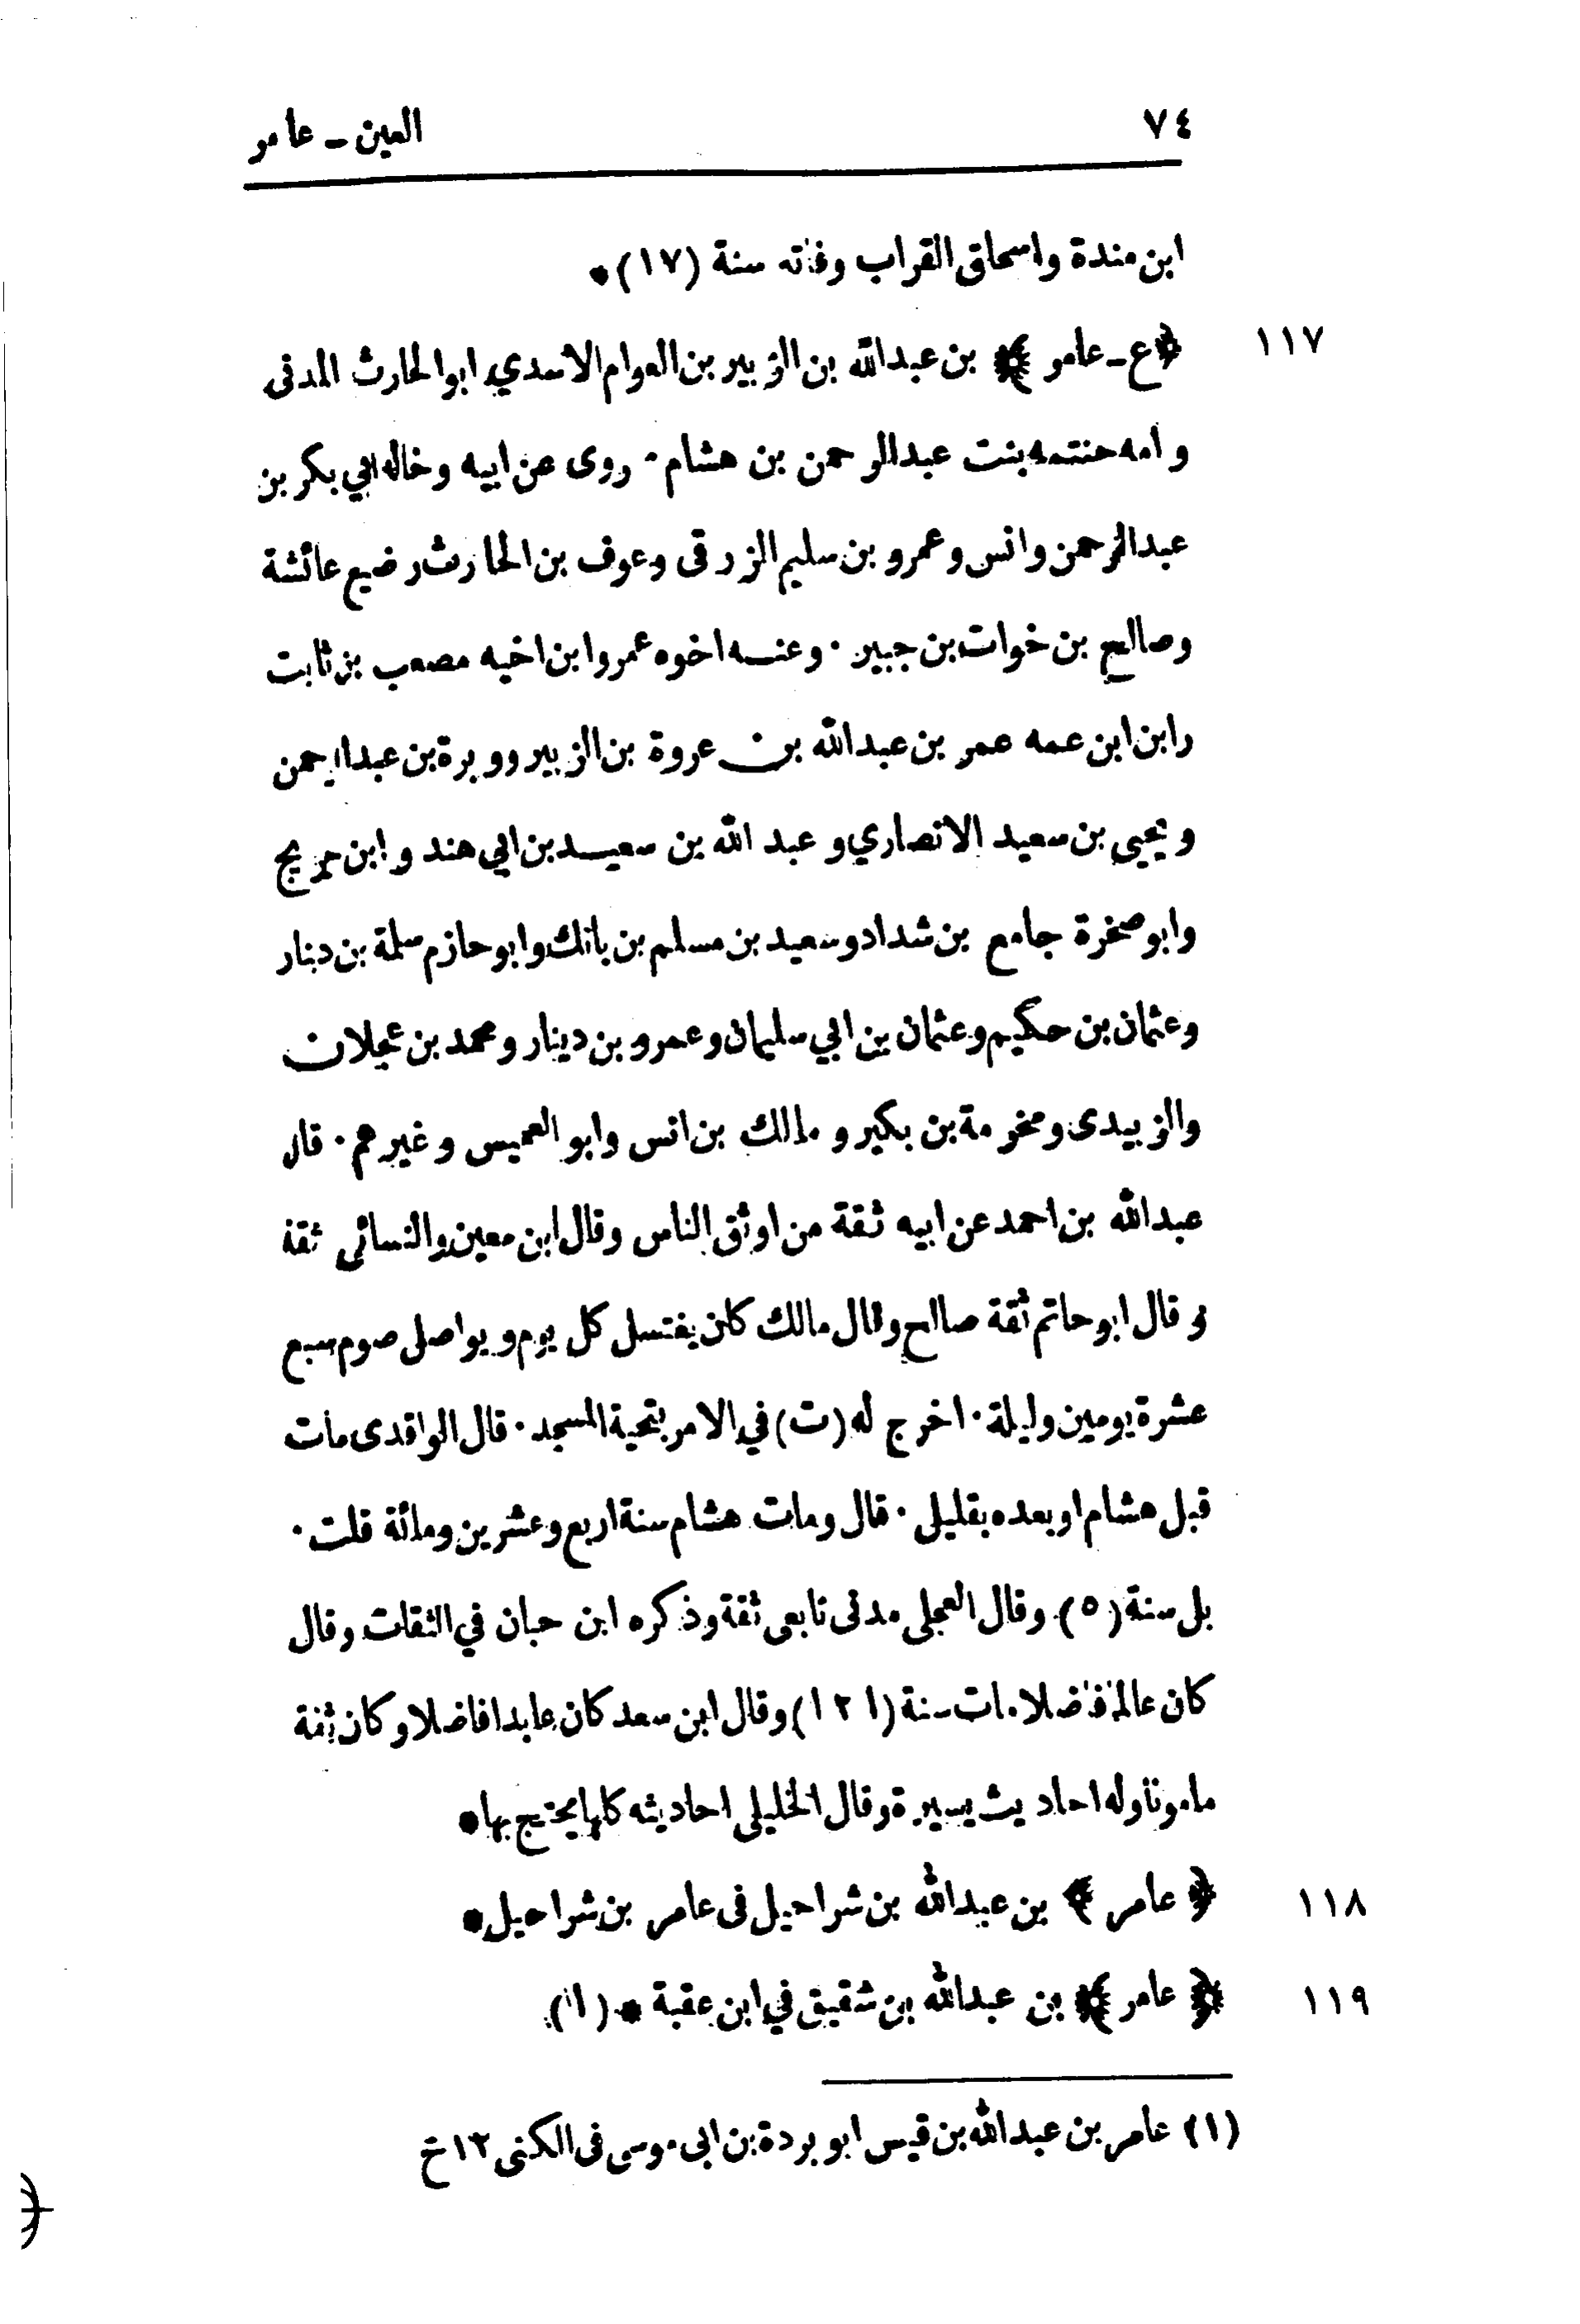 ٧٤
العين ـ عامر
ابن مندة واسحاق القراب وفاته سنة (١٧) *
١١٧ ﴿ع ـ عامر﴾ بن عبدالله بن الزبير بن العوام الاسدي ابوالحارث المدنى
وامه حنتمه بنت عبدالرحمن بن هشام ٠ روى عن ابيه وخاله ابي بكر بن
عبدالرحمن وانس وعمرو بن سليم الزرقى وعوف بن الحارث رضيع عائشة
وصالح بن خوات بن جبير ٠ وعنه اخوه عمر وابن اخيه مصعب بن ثابت
وابن ابن عمه عمر بن عبدالله بن عروة بن الزبير ووبرة بن عبدالرحمن
ويحيى بن سعيد الانصاري و عبد الله بن سعيد بن ابي هند وابن جريج
وابو صخرة جامع بن شداد وسعيد بن مسلم بن بانك وابو حازم سلمة بن دينار
وعثمان بن حكيم وعثمان بن ابي سليمان وعمرو بن دينار ومحمد بن عجلان
والزبيدى ومخرمة بن بكير و مالك بن انس وابو العميس وغيرهم ٠ قال
عبدالله بن احمد عن ابيه ثقة من اوثق الناس وقال ابن معين والنسائى ثقة
وقال ابو حاتم ثقة صالح وقال مالك كان يغتسل كل يوم ويواصل صوم سبع
عشرة يومين وليلة ٠ اخرج له (ت) في الامر بتحية المسجد ٠ قال الواقدى مات
قبل هشام او بعده بقليل ٠ قال ومات هشام سنة اربع وعشرين ومائة قلت ٠
بل سنة (٥) وقال العجلى مدنى تابعى ثقة وذكره ابن حبان في الثقات وقال
كان عالما فاضلا مات سنة (١٢١) وقال ابن سعد كان عابدا فاضلا وكان ثقة
مامونا وله احاديث يسيرة وقال الخليلى احاديثه كلها يحتج بها *
١١٨ ﴿عامر﴾ بن عبدالله بن شراحيل فى عامر بن شراحيل *
١١٩ ﴿عامر﴾ بن عبدالله بن شقيق في ابن عقبة * (١)
(١) عامر بن عبدالله بن قيس ابو بردة بن ابى موسى فى الكنى ١٢ خ